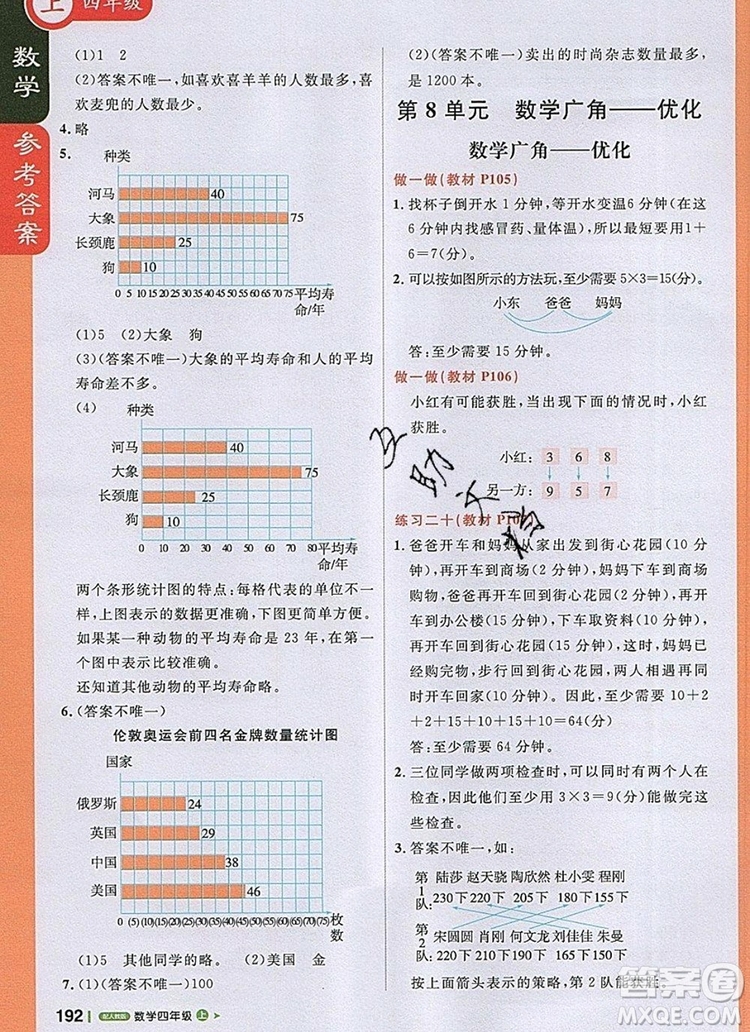 上 四年级
数学
参考答案
(1)1 2
(2)(答案不唯一)如喜欢喜羊羊的人数最多,喜
欢麦兜的人数最少。
4. 略
5. 种类
河马 40
大象 75
长颈鹿 25
狗 10
0 5 10 15 20 25 30 35 40 45 50 55 60 65 70 75 平均寿
命/年
(1)5 (2)大象 狗
(3)(答案不唯一)大象的平均寿命和人的平均
寿命差不多。
(4) 种类
河马 40
大象 75
长颈鹿 25
狗 10
0 5 10 15 20 25 30 35 40 45 50 55 60 65 70 75 80 平均寿
命/年
两个条形统计图的特点:每格代表的单位不一
样,上图表示的数据更准确,下图更节省空间。
如果某一种动物的平均寿命是 23 年,在第一
个图中表示比较准确。
还知道其他动物的平均寿命略。
6. (答案不唯一)
伦敦奥运会前四名金牌数量统计图
国家
俄罗斯 24
英国 29
中国 38
美国 46
0 (5)(10)(15)(20)(25)(30)(35)(40)(45)(50)(55)(60)(65)(70)(75) 枚
数
(1)5 其他同学的略。(2)美国 金
7. (1)(答案不唯一)100
192 配人教版 数学四年级 上
(2)(答案不唯一)卖出的时尚杂志数量最多,
是 1200 本。
第 8 单元 数学广角——优化
数学广角——优化
做一做(教材 P105)
1. 找杯子倒开水 1 分钟,等开水变温6 分钟(在这
6 分钟内找感冒药、量体温),所以最短要用1+
6=7(分)。
2. 可以按如图所示的方法玩,至少需要 5×3=15(分)。
小东 爸爸 妈妈
答:至少需要 15 分钟。
做一做(教材 P106)
小红有可能获胜,当出现下面的情况时,小红
获胜。
小红: 3 6 8
另一方: 9 5 7
练习二十(教材 P107
1. 爸爸开车和妈妈从家出发到街心花园(10 分
钟),再开车到商场(2分钟),妈妈下车到商场
购物,爸爸再开车到街心花园(2 分钟),再开
车到办公楼(15分钟),下车取资料(10 分钟),
再开车回街心花园(15 分钟),此时,妈妈已
经购完物,再开车到商场(2 分钟),最后两人
再开车回家(10 分钟)。所以共需要 10+2+
2+15+10+15+2+10
答:至少需要 64 分钟。
2. 三位同学做两项检查时,可以同时有两个人在
检查,因此,至少用 3×3=9(分)能做完这些
检查。
3. 答案不唯一,如:
第1队: 陆莎 赵天骁 陶欣然 杜小雯 程刚
230下 220下 205下 180下 155下
第2队: 宋圆圆 肖刚 何文龙 刘佳佳 朱曼
225下 210下 190下 160下 150下
按上面箭头表示的策略,第 2 队能获胜。
答案卷
MXQE.COM